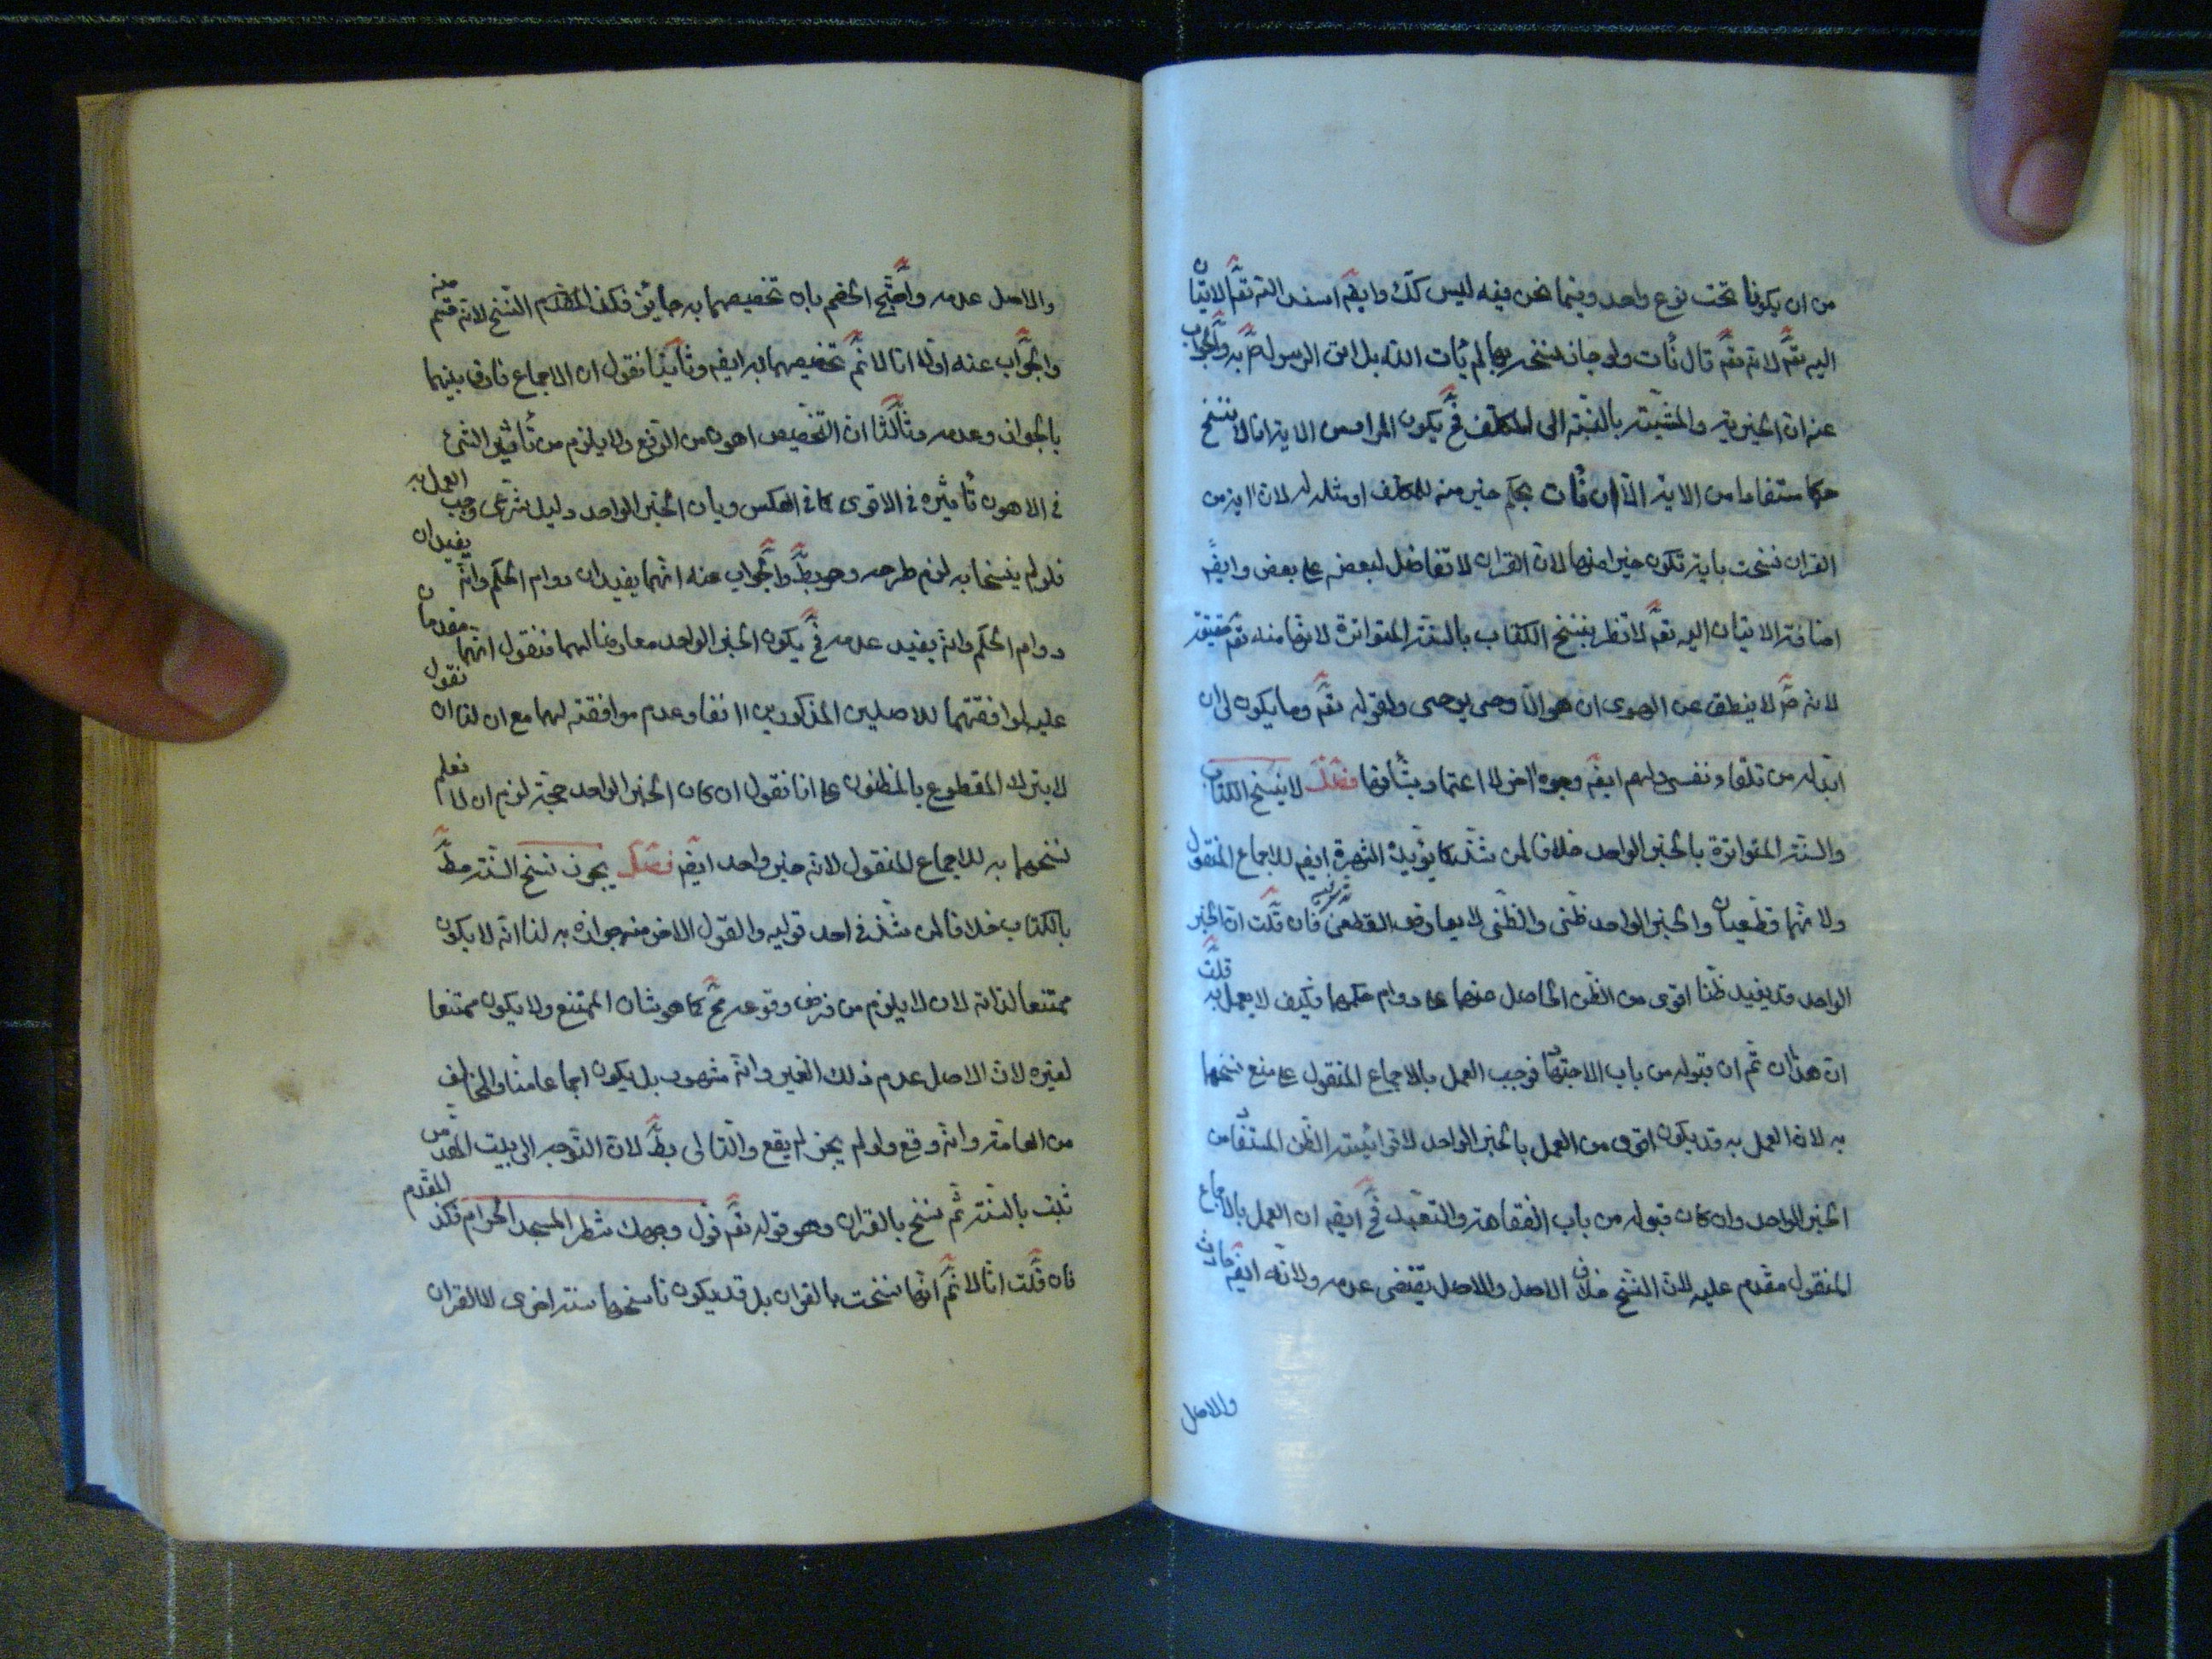 من ان يكونا تحت نوع واحد وفيما نحن فيه ليس كك وايضم اسند الله تقم الاتيان
اليه تقم لانه تقم قال نأت ولو جاز نسخه بها لم يأت الله بل اتى الرسول صم به والجواب
عنه ان الخيرية والمثلية بالنسبة الى المكلف فح يكون المراد من الاية انا لا ننسخ
حكما مستفادا من الاية الا ان نأت بحكم خير منه للمكلف او مثله له لان اية من
القران نسخت باية تكون خيرا منها لان القران لا تفاضل لبعضه على بعض وايضم
اضافة الاتيان اليه تقم لا تضر بنسخ الكتاب بالسنة المتواترة لانها منه تقم حقيقة
لانه صم لا ينطق عن الهوى ان هو الا وحى يوحى ولقوله تقم وما يكون لى ان
ابدله من تلقاء نفسى ولهم ايضم وجوه اخر لا اعتماد بشأنها فصل لا ينسخ الكتاب
والسنة المتواترة بالخبر الواحد خلافا لمن شذ كما يؤيده الشهرة ايضم للاجماع المنقول
ولانهما قطعيان والخبر الواحد ظنى والظنى لا يعارض القطعى فان قلت ان الخبر
الواحد قد يفيد ظنا اقوى من الظن الحاصل منهما على دوام حكمهما فكيف لا يعمل به قلت
ان هذا ان تم ان قبوله من باب الاجتهاد فوجب العمل بالاجماع المنقول على منع نسخهما
به لان العمل به قد يكون اقوى من العمل بالخبر الواحد لاقوائية الظن المستفاد من
الخبر الواحد وان كان قبوله من باب الفقاهة والتعبد فح ايضم ان العمل بالاجماع
المنقول مقدم عليه لان النسخ خلاف الاصل والاصل يقتضى عدمه ولانه ايضم حادث
والاصل
والاصل عدمه واحتج الخصم بان تخصيصهما به جايز فكذا المقدم النسخ لانه قسم منه
والجواب عنه اولا انا لا نم تخصيصهما به ايضم وثانيا نقول ان الاجماع فارق بينهما
بالجواز وعدمه وثالثا ان التخصيص اهون من الرفع ولا يلزم من تأثير الشئ
فى الاهون تأثيره فى الاقوى كما فى العكس وبان الخبر الواحد دليل شرعى وجب العمل به
فلو لم ينسخا به لزم طرحه وهو بط والجواب عنه انهما يفيدان دوام الحكم وانه يفيد ان
دوام الحكم وانه يفيد عدمه فح يكون الخبر الواحد معارضا لهما فنقول انهما مقدمان
عليه لموافقتهما للاصلين المذكورين انفا وعدم موافقته لهما مع ان لنا ان نقول
لا يترك المقطوع بالمظنون على انا نقول ان كان الخبر الواحد حجة لزم ان لا نعلم
نسخهما به للاجماع المنقول لانه خبر واحد ايضم فصل يجوز نسخ السنة مط
بالكتاب خلافا لمن شذ فى احد قوليه والقول الاخر منه جوازه به لنا انه لا يكون
ممتنعا لذاته لان لا يلزم من فرض وقوعه مح كما هو شان الممتنع ولا يكون ممتنعا
لغيره لان الاصل عدم ذلك الغير وانه مشهور بل يكون اجماعا منا والمخالف
من العامة وانه وقع ولو لم يجز لم يقع والتالى بط لان التوجه الى بيت المقدس
ثبت بالسنة ثم نسخ بالقران وهو قوله تقم فول وجهك شطر المسجد الحرام فكذا المقدم
فان قلت انا لا نم انها نسخت بالقران بل قد يكون ناسخها سنة اخرى لا القران